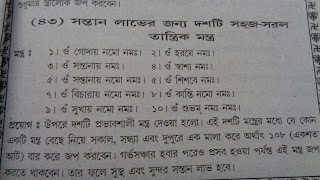 শুধুমাত্র স্ত্রীলোক জপ করবেন।
(৪৩) সন্তান লাভের জন্য দশটি সহজ-সরল
তান্ত্রিক মন্ত্র
মন্ত্র : ১। ওঁ গোদায় নমো নমঃ। ২। ওঁ হরয়ে নমঃ।
৩। ওঁ সন্তানায় নমঃ। ৪। ওঁ স্বাশ্য নমঃ।
৫। ওঁ সন্তানায় নমো নমঃ। ৬। ওঁ শিশবে নমঃ।
৭। ওঁ বিচারায় নমো নমঃ। ৮। ওঁ কান্তি নমো নমঃ।
৯। ওঁ সুখায় নমো নমঃ। ১০। ওঁ শুভম্ নমঃ নমঃ।
প্রয়োগ : উপরে দশটি প্রভাবশালী মন্ত্র দেওয়া হলো। এই দশটি মন্ত্রের মধ্যে যে কোন
একটি মন্ত্র বেছে নিয়ে সকাল, সন্ধ্যা এবং দুপুরে এক মালা করে অর্থাৎ ১০৮ (একশত
আট) বার করে জপ করবেন। গর্ভসঞ্চার হবার পরেও প্রসব হওয়া পর্যন্ত এই মন্ত্র জপ
করতে থাকবেন। তার ফলে সুস্থ এবং সুন্দর সন্তান লাভ হবে।